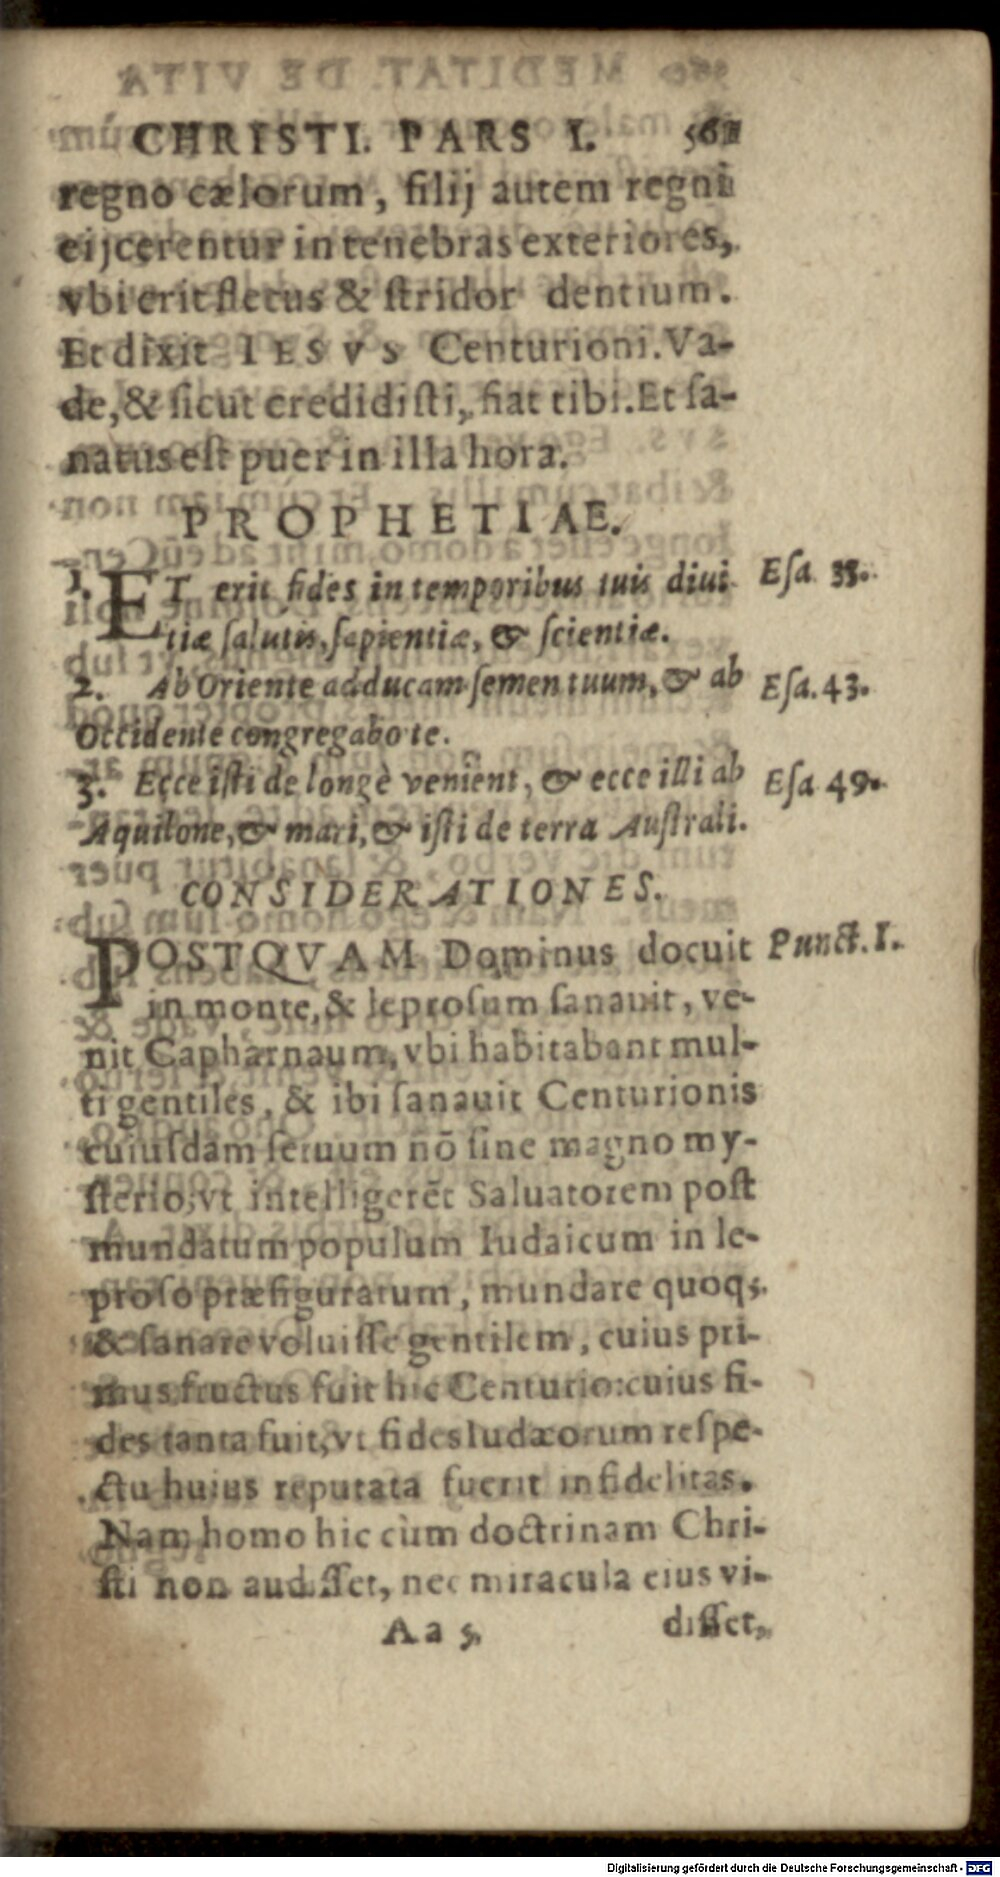 CHRISTI. PARS I. 561
regno cælorum, filij autem regni
eijcerentur in tenebras exteriores,
vbi erit fletus & stridor dentium.
Et dixit IESVS Centurioni. Va-
de, & sicut credidisti, fiat tibi. Et sa-
natus est puer in illa hora.
PROPHETIAE.
1. ET erit fides in temporibus tuis diui- Esa. 33.
tiæ salutis, sapientiæ, & scientiæ.
2. Ab Oriente adducam semen tuum, & ab Esa. 43.
Occidente congregabo te.
3. Ecce isti de longè venient, & ecce illi ab Esa. 49.
Aquilone, & mari, & isti de terra Australi.
CONSIDERATIONES.
POSTQVAM Dominus docuit Punct. I.
in monte, & leprosum sanauit, ve-
nit Capharnaum, vbi habitabant mul-
ti gentiles, & ibi sanauit Centurionis
cuiusdam seruum nō sine magno my-
sterio, vt intelligerēt Saluatorem post
mundatum populum Iudaicum in le-
proso præfiguratum, mundare quoq;
& sanare voluisse gentilem, cuius pri-
mus fructus fuit hic Centurio: cuius fi-
des tanta fuit, vt fides Iudæorum respe-
ctu huius reputata fuerit infidelitas.
Nam homo hic cùm doctrinam Chri-
sti non audisset, nec miracula eius vi-
Aa 5 disset,
Digitalisierung gefördert durch die Deutsche Forschungsgemeinschaft - DFG